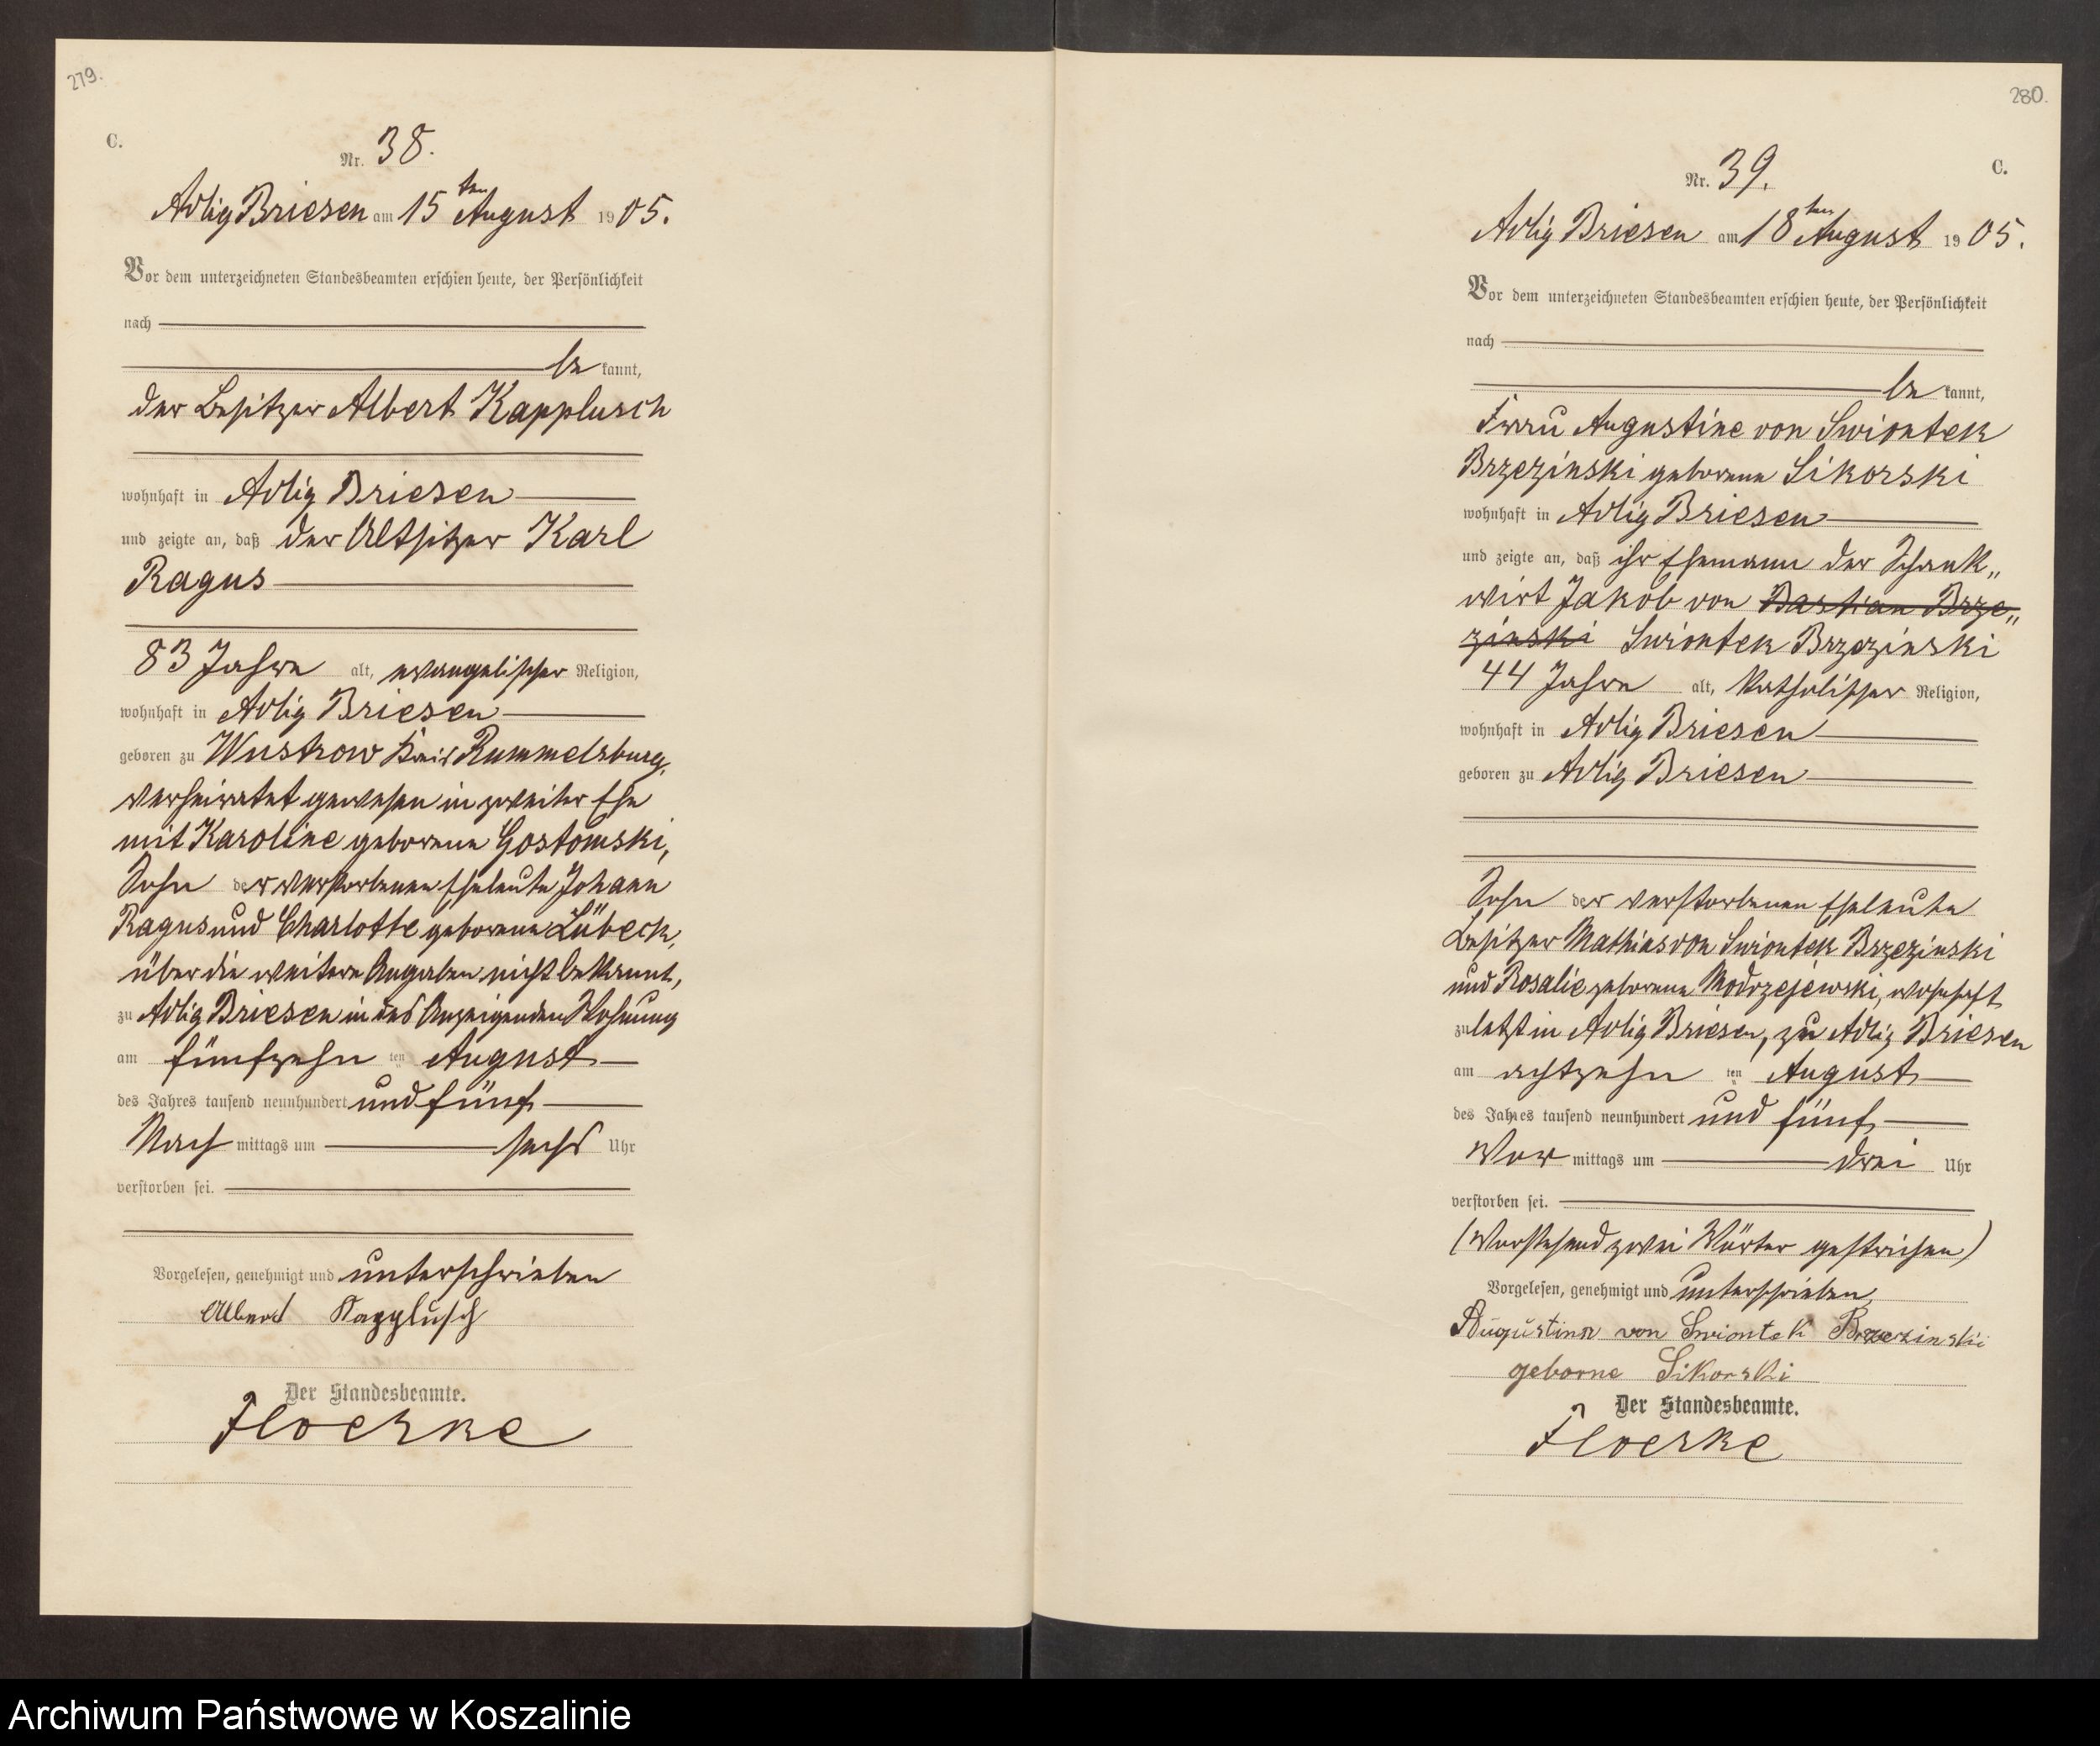 279.
C.
Nr. 38.
Adlig Briesen am 15ten August 1905.
Vor dem unterzeichneten Standesbeamten erschien heute, der Persönlichkeit
nach
be kannt,
der Besitzer Albert Kapplusch
wohnhaft in Adlig Briesen
und zeigte an, daß der Altsitzer Karl
Ragus
83 Jahre alt, evangelischer Religion,
wohnhaft in Adlig Briesen
geboren zu Wustrow Kreis Rummelsburg,
verheiratet gewesen in zweiter Ehe
mit Karoline geborene Gostomski,
Sohn der verstorbenen Eheleute Johann
Ragus und Charlotte geborene Lübeck,
über die weitere Angaben nicht bekannt,
zu Adlig Briesen in des Anzeigenden Wohnung
am fünfzehn ten August
des Jahres tausend neunhundert und fünf
Nach mittags um sechs Uhr
verstorben sei.
Vorgelesen, genehmigt und unterschrieben
Albert Kapplusch
Der Standesbeamte.
Floerke
280.
C.
Nr. 39.
Adlig Briesen am 18ten August 1905.
Vor dem unterzeichneten Standesbeamten erschien heute, der Persönlichkeit
nach
be kannt,
Frau Augustine von Swiontek
Brzezinski geborene Sikorski
wohnhaft in Adlig Briesen
und zeigte an, daß ihr Ehemann der Schank„
wirt Jakob von Bastian Brze„
zinski Swiontek Brzezinski
44 Jahre alt, katholischer Religion,
wohnhaft in Adlig Briesen
geboren zu Adlig Briesen
Sohn der verstorbenen Eheleute
Besitzer Mathias von Swiontek Brzezinski
und Rosalie geborene Modrzejewski, wohnhaft
zuletzt in Adlig Briesen, zu Adlig Briesen
am achtzehn ten August
des Jahres tausend neunhundert und fünf
Vor mittags um drei Uhr
verstorben sei.
(Vorstehend zwei Wörter gestrichen)
Vorgelesen, genehmigt und unterschrieben
Augustine von Swiontek Brzezinski
geborne Sikorski
Der Standesbeamte.
Floerke
Archiwum Państwowe w Koszalinie